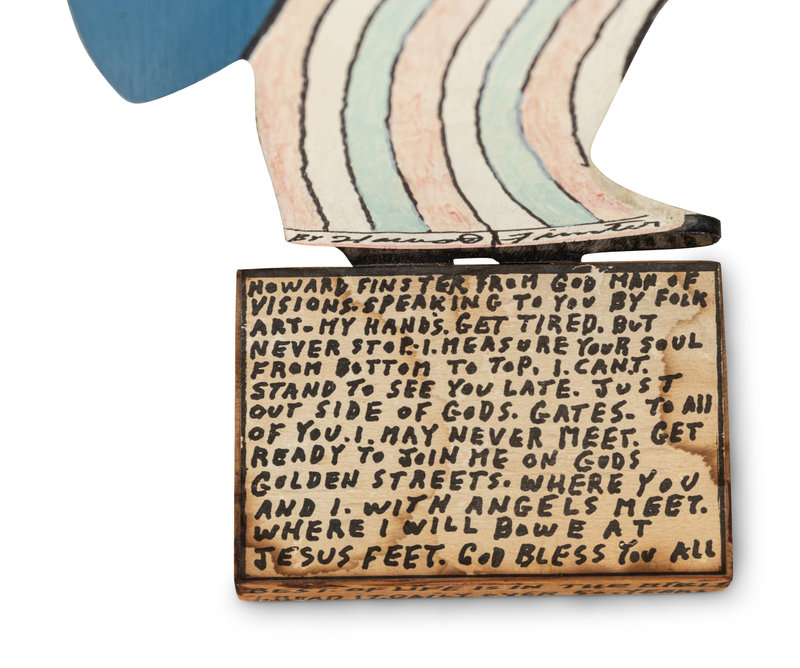 BY Howard Finster
HOWARD FINSTER FROM GOD MAN OF
VISIONS. SPEAKING TO YOU BY FOLK
ART- MY HANDS. GET TIRED. BUT
NEVER STOP. I. MEASURE YOUR SOUL
FROM BOTTOM TO TOP. I. CANT.
STAND TO SEE YOU LATE. JUST
OUT SIDE OF GODS. GATES. TO All
OF YOU. I. MAY NEVER MEET. GET
READY TO JOIN ME ON GODS
GOLDEN STREETS. WHERE YOU
AND I. WITH ANGELS MEET.
WHERE I WILL BOWE AT
JESUS FEET. GOD BLESS YOU ALL
BEST OF LIFE IS IN THE